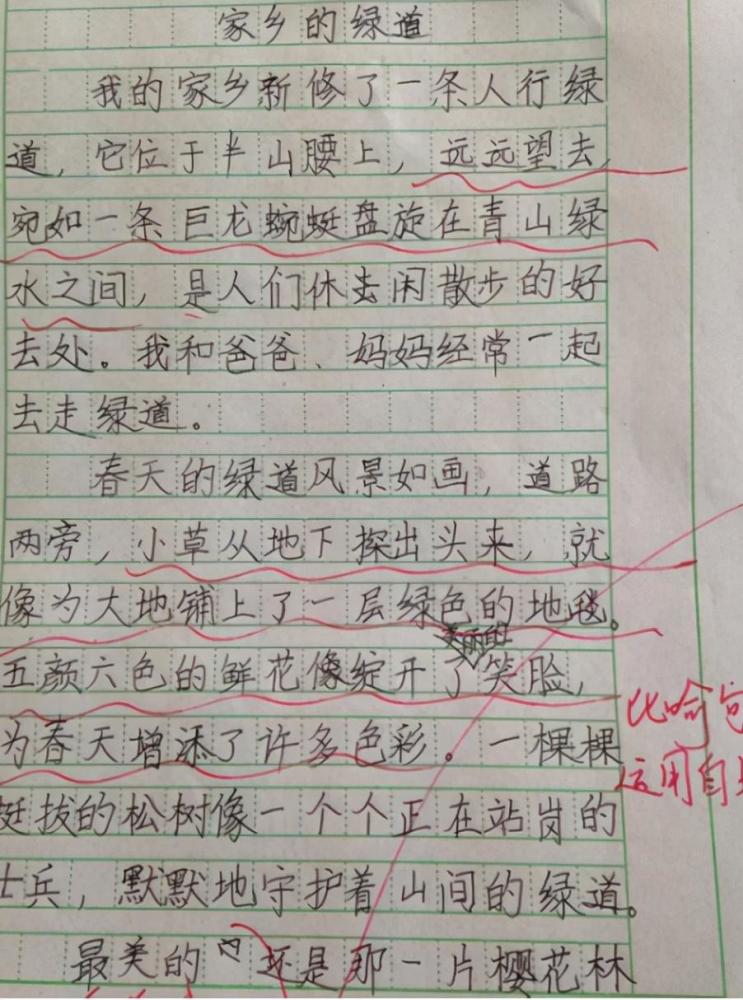 家乡的绿道
我的家乡新修了一条人行绿
道，它位于半山腰上，远远望去，
宛如一条巨龙蜿蜒盘旋在青山绿
水之间，是人们休去闲散步的好
去处。我和爸爸、妈妈经常一起
去走绿道。
春天的绿道风景如画，道路
两旁，小草从地下探出头来，就
像为大地铺上了一层绿色的地毯。
美丽的
五颜六色的鲜花像绽开了笑脸，
为春天增添了许多色彩。一棵棵
挺拔的松树像一个个正在站岗的
士兵，默默地守护着山间的绿道。
最美的还是那一片樱花林
比喻句
运用自